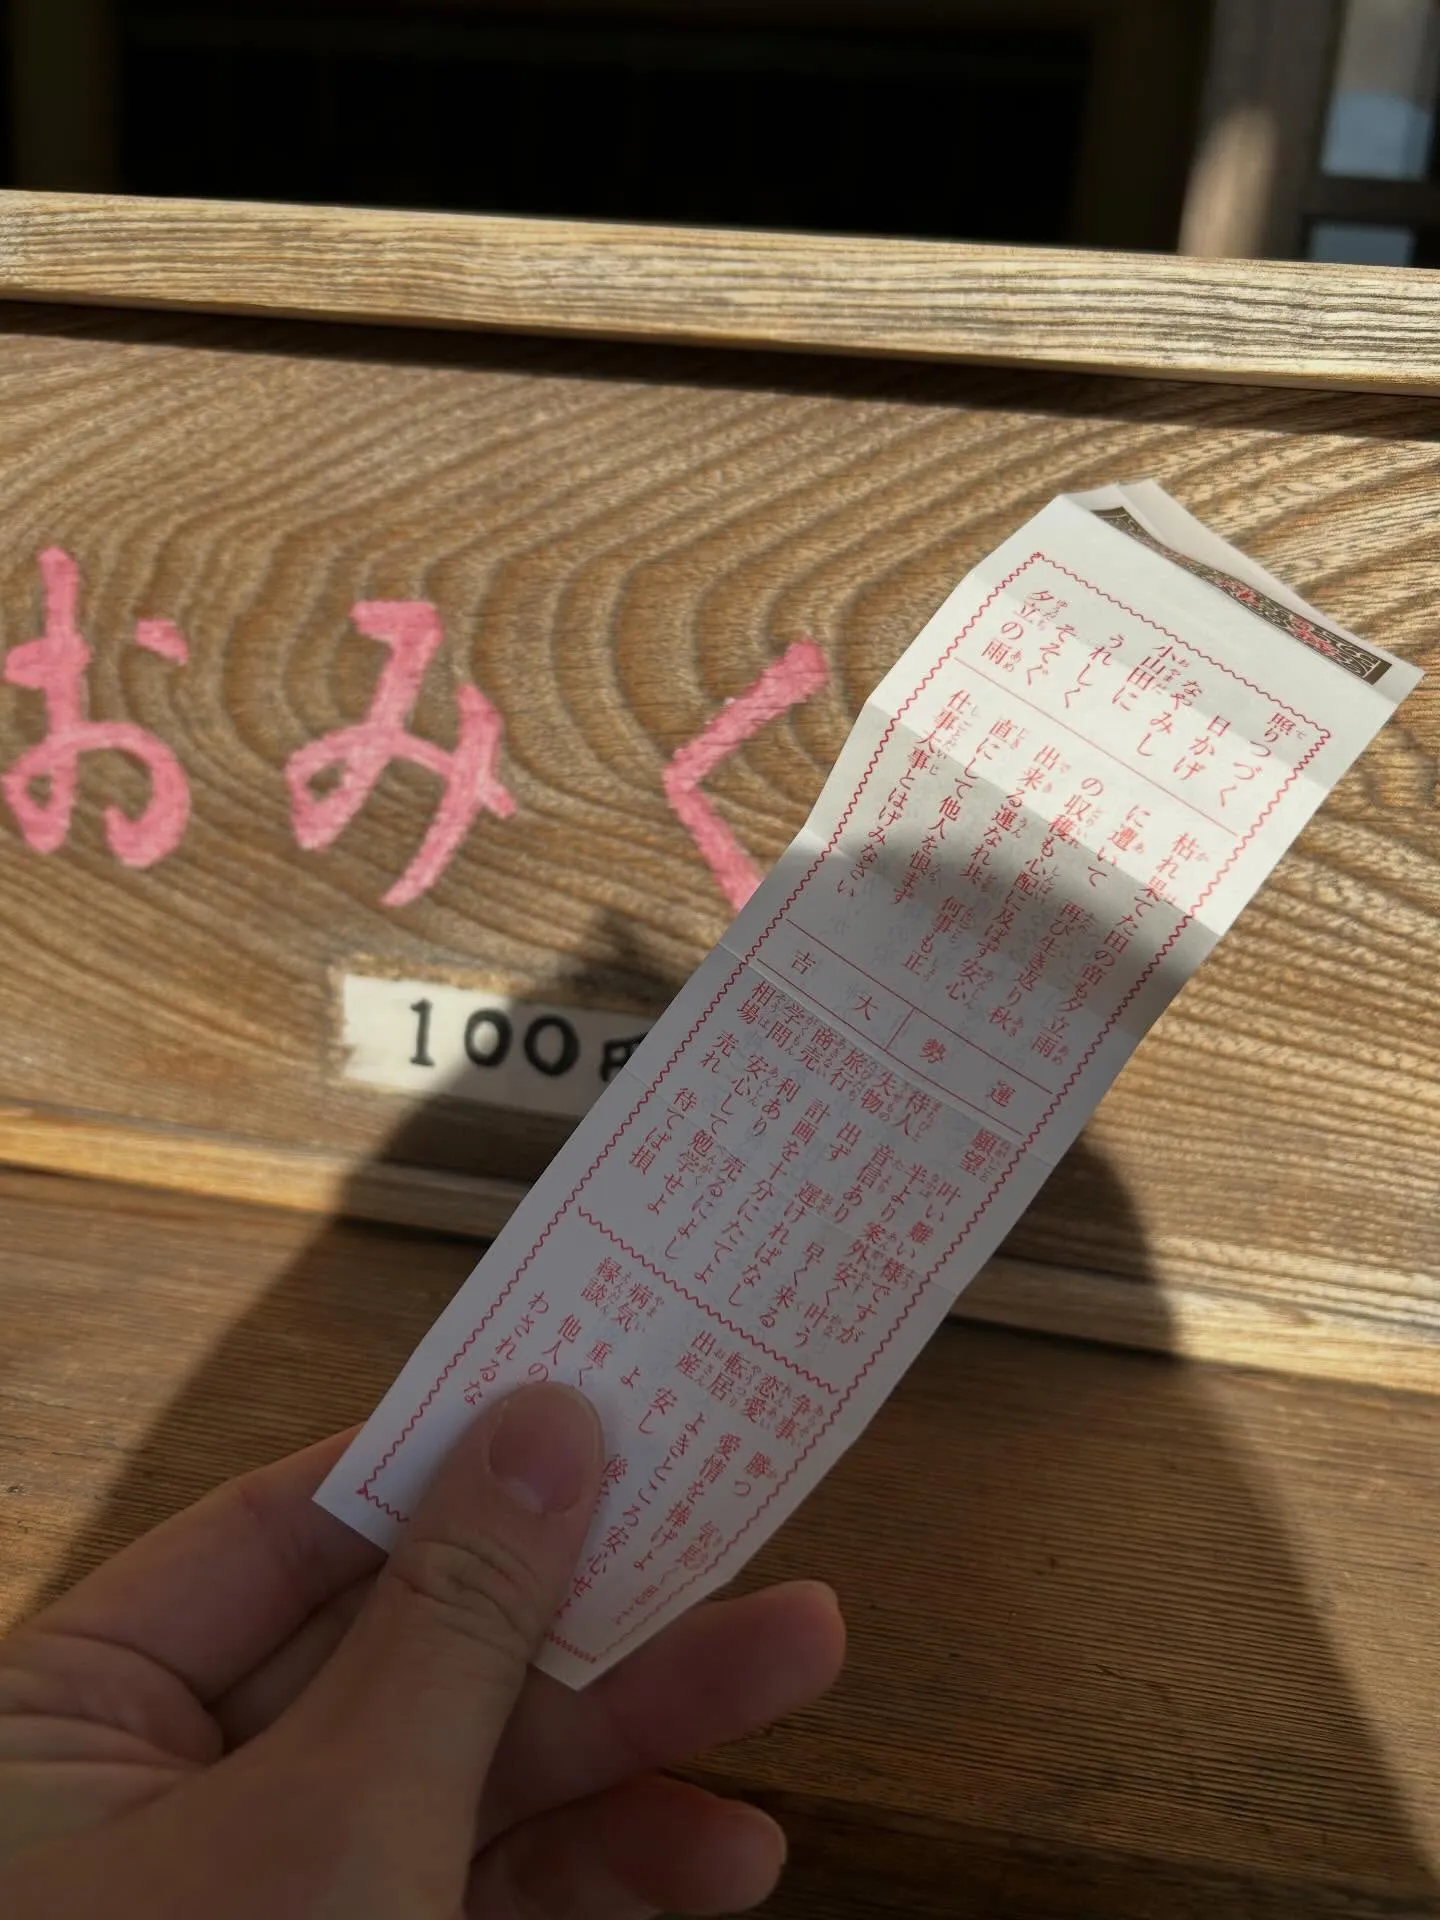 おみく
100円
照りつづく
日かげ
なやみし
小山田に
うれしく
そそぐ
夕立の雨
枯れ果てた田の苗も夕立雨
に遭いて 再び生き返り秋
の収穫も心配に及ばず安心
出来る運なれ共 何事も正
直にして他人を恨まず
仕事大事とはげみなさい
運勢 大吉
願望 叶い難い様ですが
半より案外安く叶う
待人 音信あり 早く来る
失物 出ず 遅ければなし
旅行 計画を十分にたてよ
商売 利あり 売るによし
学問 安心して勉学せよ
相場 売れ 待てば損
争事 勝つ 気長く
恋愛 愛情を捧げよ
転居 よきところ
出産 安し 安心せよ
病気 重く
縁談 他人の
わされるな